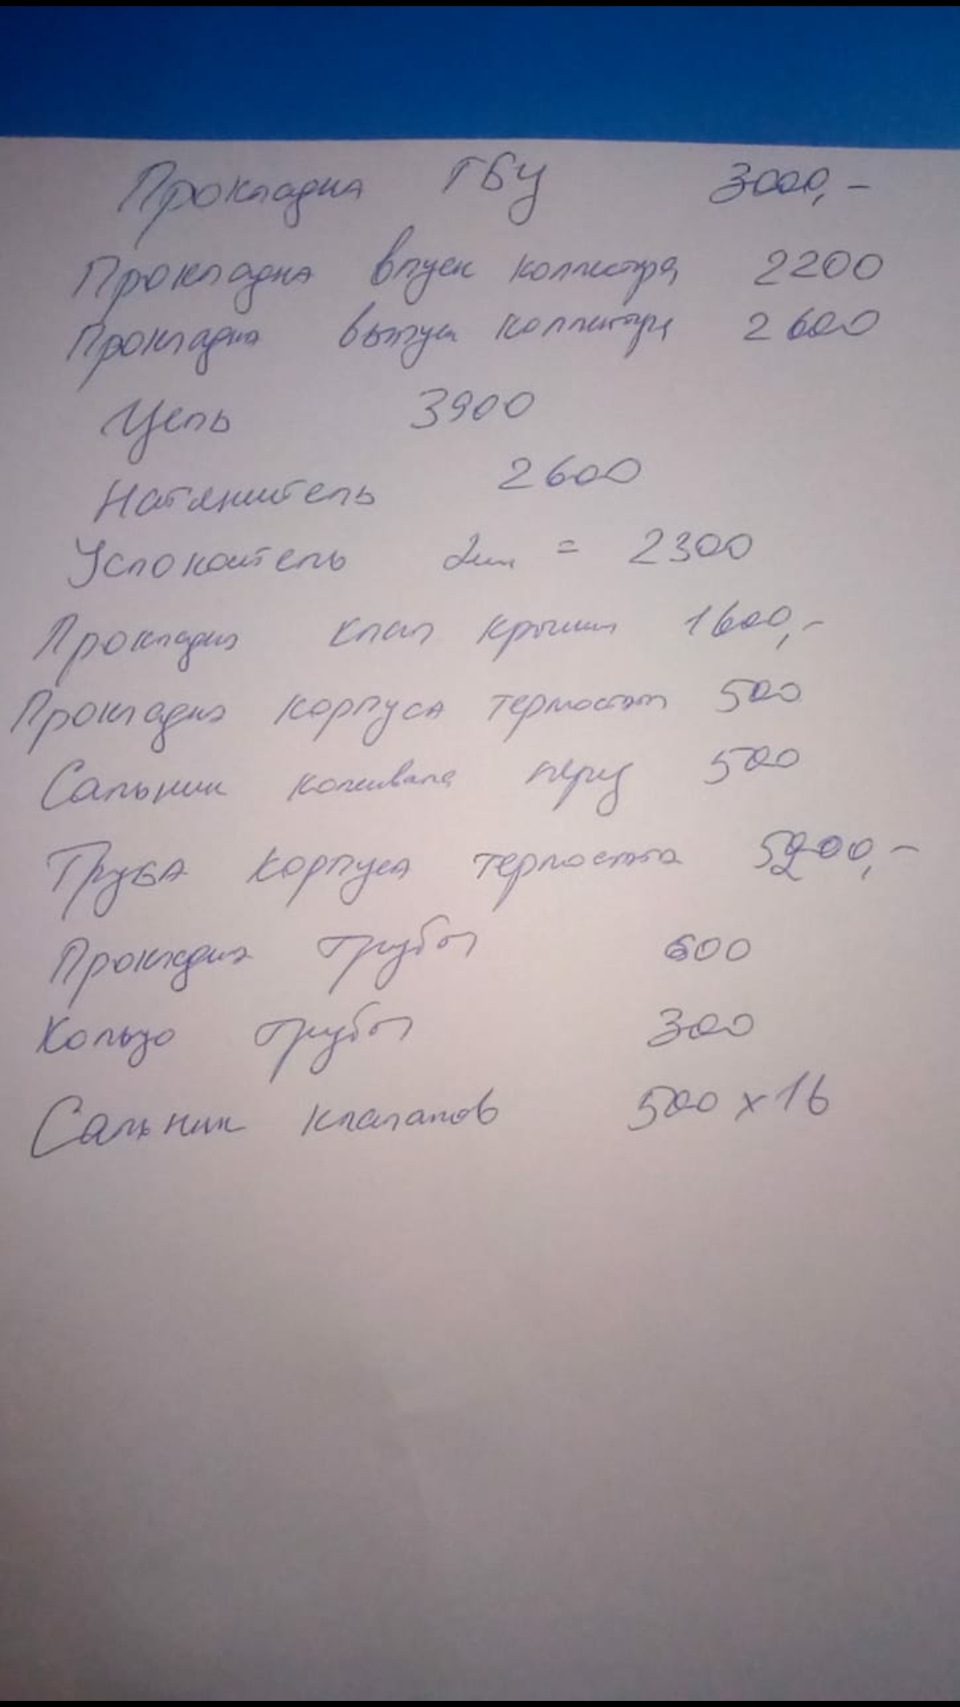 Прокладка ГБЦ 3000,-
Прокладка впуск коллектора 2200
Прокладка выпуск коллектора 2600
Цепь 3900
Натяжитель 2600
Успокоитель 2шт = 2300
Прокладка клап крышки 1600,-
Прокладка корпуса термостат 500
Сальник коленвала перед 500
Труба корпуса термостата
Прокладка трубы 600
Кольцо трубы 300
Сальник клапанов 500 x 16